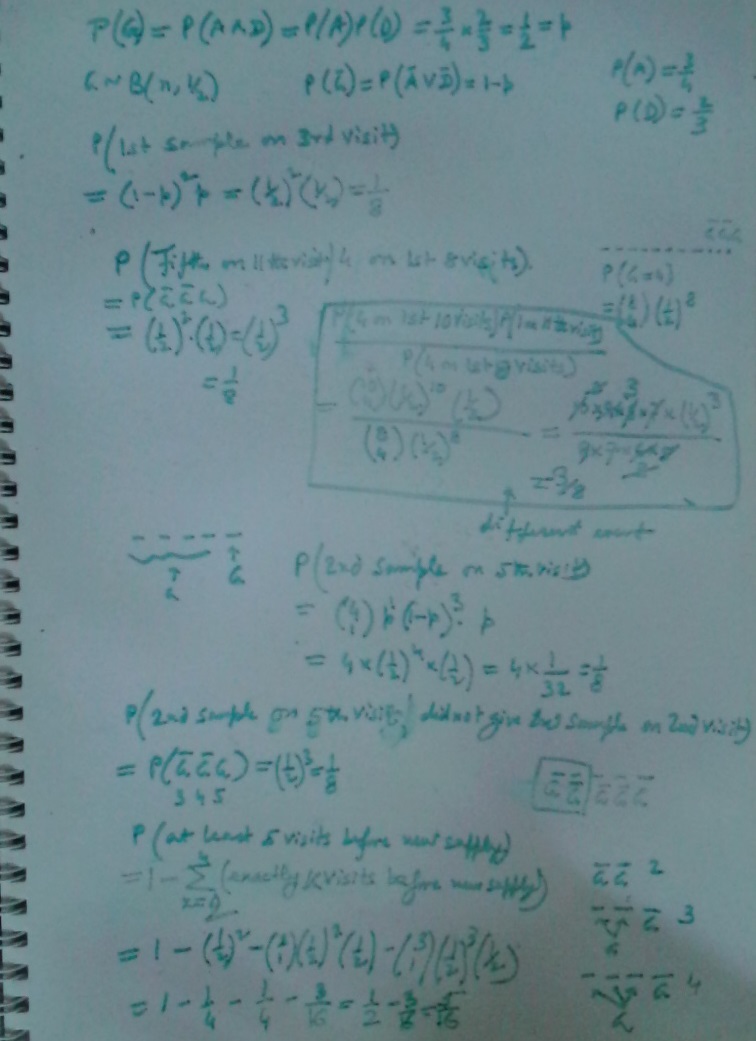 P(G) = P(A∧D) = P(A)P(D) = 3/4 × 2/3 = 1/2 = p
G ~ B(n, 1/2) P(Ḡ) = P(Ā∨D̄) = 1-p
P(A) = 3/4
P(D) = 2/3
P(1st sample on 3rd visit)
= (1-p)²p = (1/2)²(1/2) = 1/8
P(Fifth on 11th visit | 4 on 1st 8 visits).
= P(Ḡ Ḡ G)
= (1/2)²·(1/2) = (1/2)³
= 1/8
P(G=4)
= (8 4)(1/2)⁸
P(4 on 1st 10 visits)P(1 on 11th visit)
P(4 on 1st 8 visits)
= (10 4)(1/2)¹⁰(1/2)
(8 4)(1/2)⁸
= 3/8
different event
G G
P(2nd sample on 5th visit)
= (4 1) p¹(1-p)³· p
= 4×(1/2)⁴×(1/2) = 4×1/32 = 1/8
P(2nd sample on 5th visit | did not give 2nd sample on 2nd visit)
= P(Ḡ Ḡ G) = (1/2)³ = 1/8
3 4 5
P(at least 5 visits before new supply)
= 1 - Σ (exactly x visits before new supply)
G G 2
= 1 - (1/2)² - (2 1)(1/2)²(1/2) - (3 1)(1/2)³(1/2)
G 3
G
= 1 - 1/4 - 1/4 - 3/16 = 1/2 - 3/16 = 5/16
G 4
G